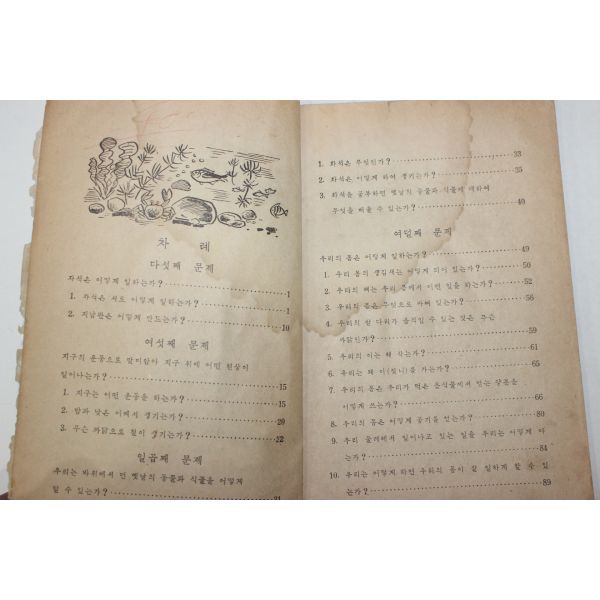 차 례
다섯째 문제
자석은 어떻게 일하는가? 1
1. 자석은 서로 어떻게 일하는가? 1
2. 지남판은 어떻게 만드는가? 10
여섯째 문제
지구의 운동으로 말미암아 지구 위에 어떤 현상이
일어나는가? 15
1. 지구는 어떤 운동을 하는가? 15
2. 밤과 낮은 어째서 생기는가? 20
3. 무슨 까닭으로 철이 생기는가? 22
일곱째 문제
우리는 바위에서 먼 옛날의 동물과 식물을 어떻게
알 수 있는가? 31
1. 화석은 무엇인가? 33
2. 화석은 어떻게 하여 생기는가? 35
3. 화석을 공부하면 옛날의 동물과 식물에 대하여
무엇을 배울 수 있는가? 40
여덟째 문제
우리의 몸은 어떻게 일하는가? 49
1. 우리 몸의 생김새는 어떻게 되어 있는가? 50
2. 우리의 뼈는 우리 몸에서 어떤 일을 하는가? 52
3. 우리의 몸은 무엇으로 싸여 있는가? 56
4. 우리의 팔 다리가 움직일 수 있는 것은 무슨
까닭인가? 59
5. 우리의 이는 왜 삭는가? 61
6. 우리는 왜 이(잇니)를 가는가? 65
7. 우리의 몸은 우리가 먹은 음식물에서 얻는 양분을
어떻게 쓰는가? 66
8. 우리의 몸은 어떻게 공기를 얻는가? 80
9. 우리 둘레에서 일어나고 있는 일을 우리는 어떻게 아
는가? 84
10. 우리는 어떻게 하면 우리의 몸이 잘 일하게 할 수 있
는가? 89